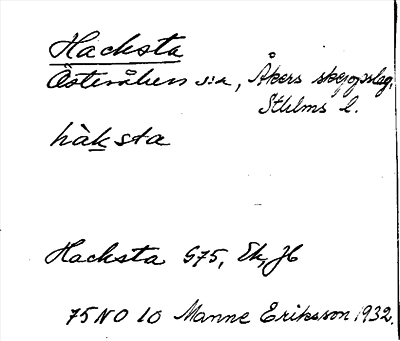 Hacksta
Österåkers s:n, Åkers skeppslag,
Sthlms l.
hàksta
Hacksta G75, Ek, JK
75 NO 10 Manne Eriksson 1932.